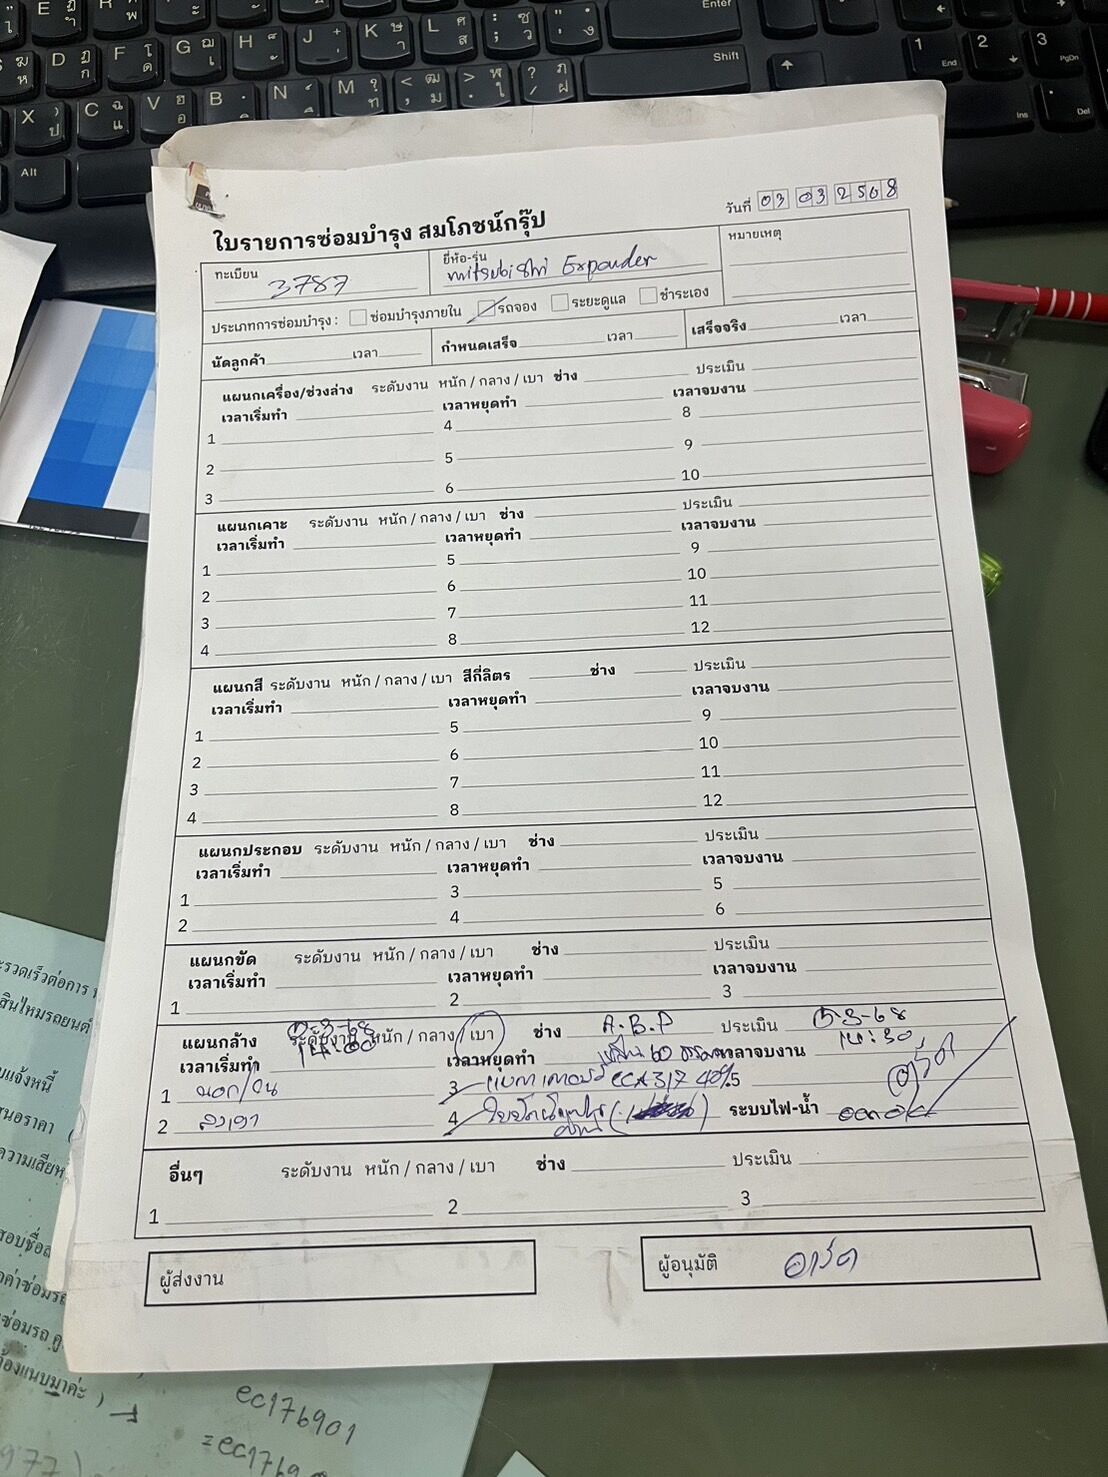 วันที่ 03 03 2568
ใบรายการซ่อมบำรุง สมโภชน์กรุ๊ป
ทะเบียน 3787 ยี่ห้อ-รุ่น mitsubishi Expander หมายเหตุ
ประเภทการซ่อมบำรุง : ซ่อมบำรุงภายใน รถจอง ระยะดูแล ชำระเอง
นัดลูกค้า เวลา กำหนดเสร็จ เวลา เสร็จจริง เวลา
แผนกเครื่อง/ช่วงล่าง ระดับงาน หนัก / กลาง / เบา ช่าง ประเมิน
เวลาเริ่มทำ เวลาหยุดทำ เวลาจบงาน
1 4 8
2 5 9
3 6 10
แผนกเคาะ ระดับงาน หนัก / กลาง / เบา ช่าง ประเมิน
เวลาเริ่มทำ เวลาหยุดทำ เวลาจบงาน
1 5 9
2 6 10
3 7 11
4 8 12
แผนกสี ระดับงาน หนัก / กลาง / เบา สีกี่ลิตร ช่าง ประเมิน
เวลาเริ่มทำ เวลาหยุดทำ เวลาจบงาน
1 5 9
2 6 10
3 7 11
4 8 12
แผนกประกอบ ระดับงาน หนัก / กลาง / เบา ช่าง ประเมิน
เวลาเริ่มทำ เวลาหยุดทำ เวลาจบงาน
1 3 5
2 4 6
แผนกขัด ระดับงาน หนัก / กลาง / เบา ช่าง ประเมิน
เวลาเริ่มทำ เวลาหยุดทำ เวลาจบงาน
1 2 3
แผนกล้าง ระดับงาน หนัก / กลาง / เบา ช่าง A.B.P ประเมิน
เวลาเริ่มทำ 14:00 เวลาหยุดทำ เวลาจบงาน 14:30
1 นอก/ใน 3 5
2 ลงเงา 4 ระบบไฟ-น้ำ
อื่นๆ ระดับงาน หนัก / กลาง / เบา ช่าง ประเมิน
1 2 3
ผู้ส่งงาน ผู้อนุมัติ
ec176901